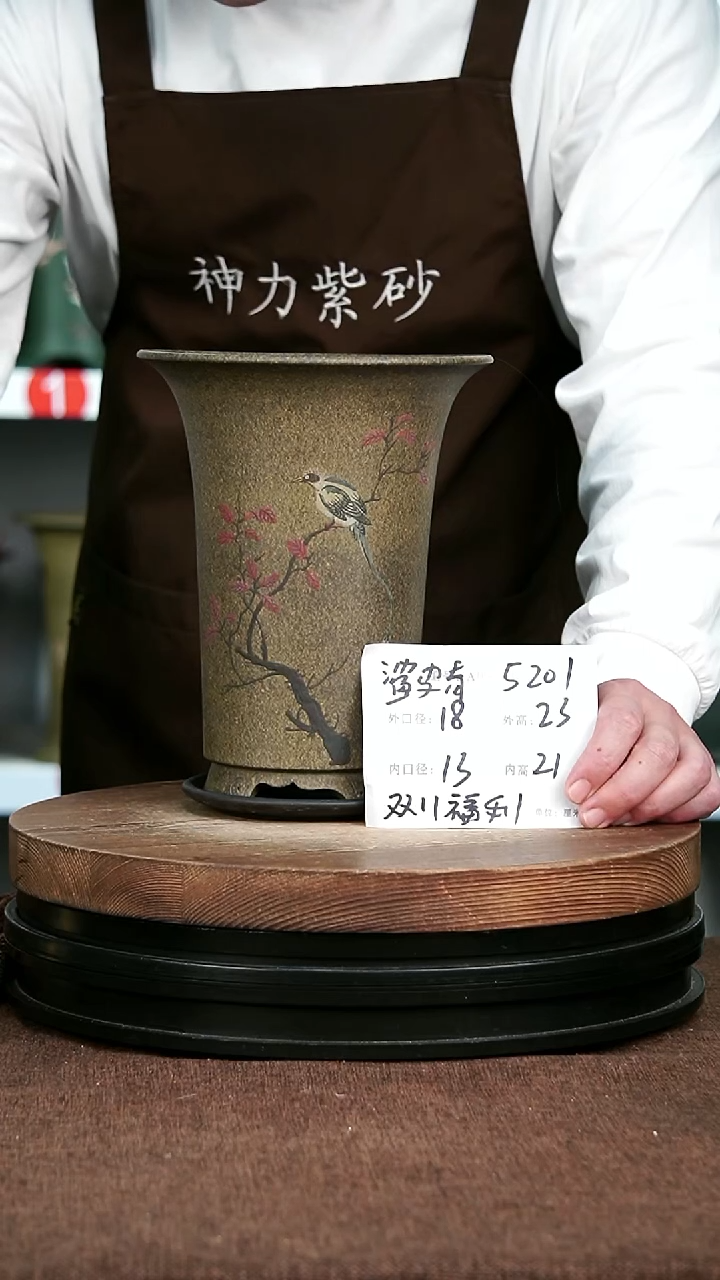 神力紫砂
1
5201
外口径:18 外高:23
内口径:13 内高21
双11福利 单位:厘米